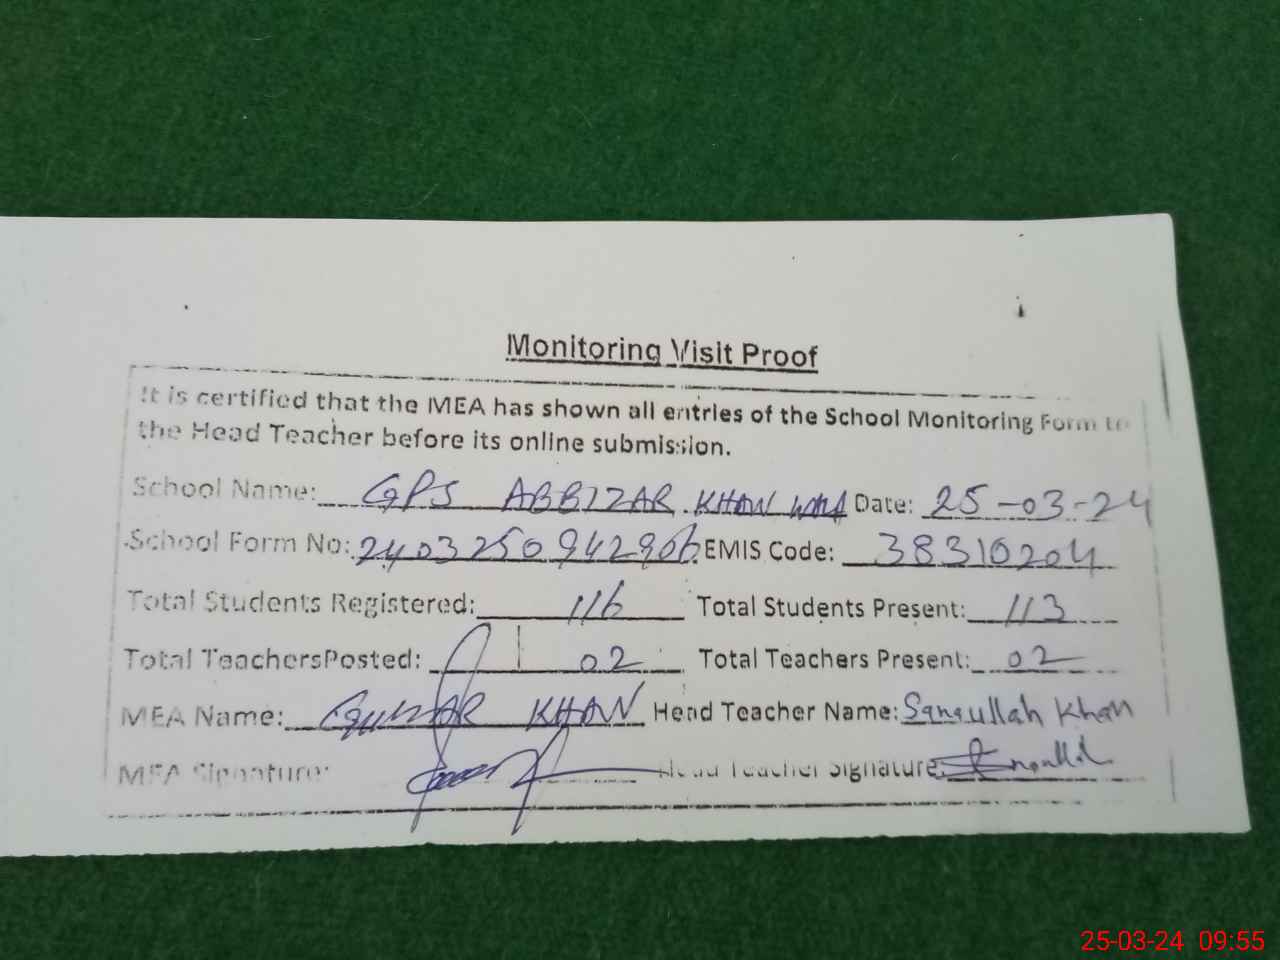 Monitoring Visit Proof
It is certified that the MEA has shown all entries of the School Monitoring Form to
the Head Teacher before its online submission.
School Name: GPS ABBIZAR KHAN WALA Date: 25-03-24
School Form No: 2403250942906 EMIS Code: 38310204
Total Students Registered: 116 Total Students Present: 113
Total TeachersPosted: 02 Total Teachers Present: 02
MEA Name: GULZAR KHAN Head Teacher Name: Sanaullah Khan
MEA Signature: Head Teacher Signature:
25-03-24 09:55